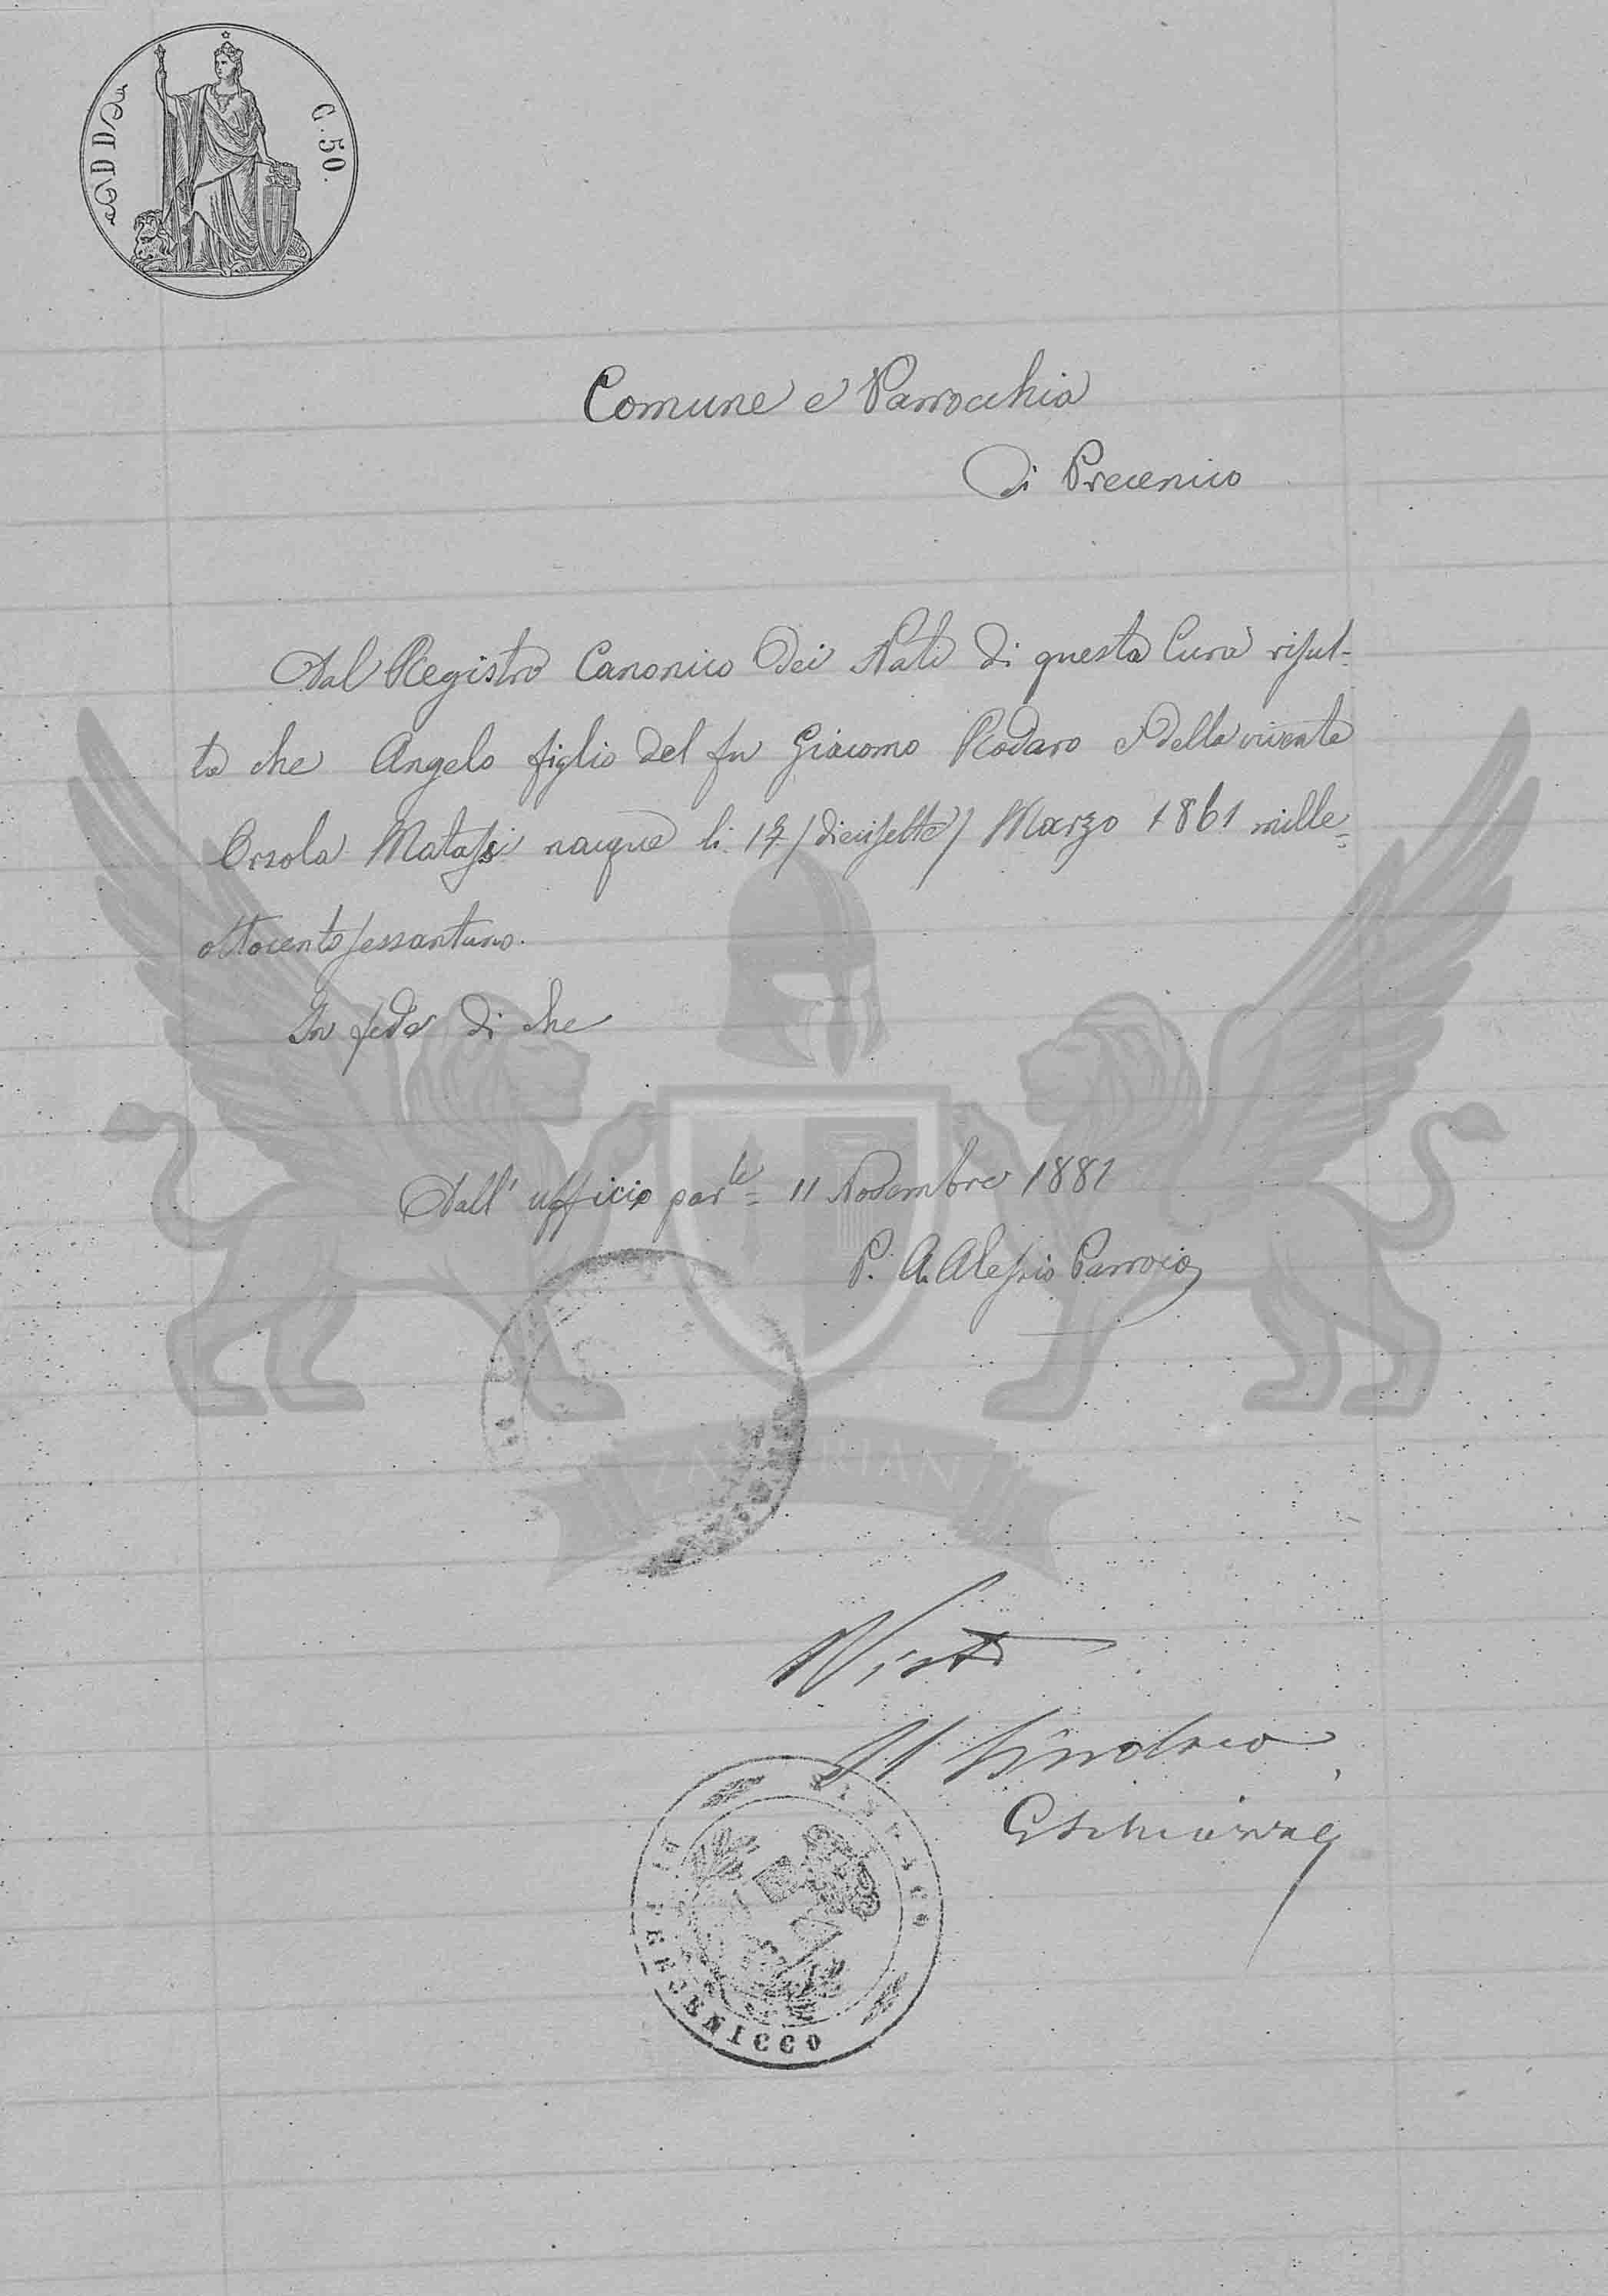 C. 50.
Comune e Parrocchia
di Precenico
Dal Registro Canonico dei Nati di questa Cura risul-
ta che Angelo figlio del fu Giacomo Rodaro e della vivente
Orsola Matassi nacque li 17 /diecisette/ Marzo 1861 mille=
ottocento sessantuno.
In fede di che
Dall' ufficio par.le = 11 Novembre 1881
P. A. Alessio Parroco
ZA RIAN
Visto
Il Sindaco
SINDACO
DI PERCENICCO